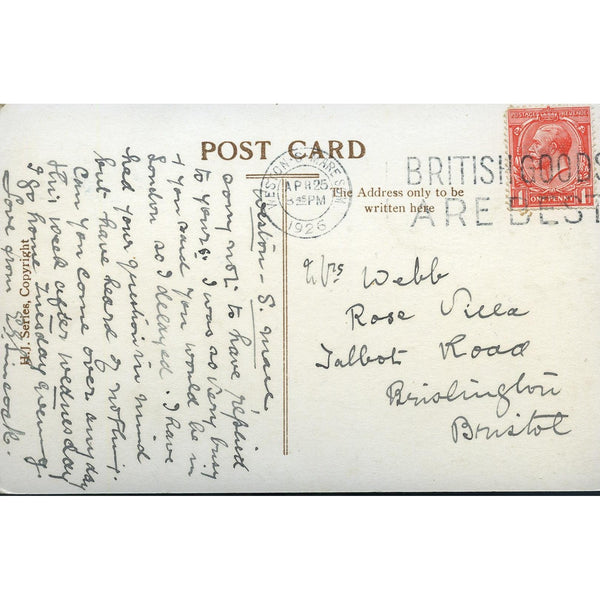 POST CARD
WESTON-S-MARE
APR 25
5.45 PM
1926
BRITISH GOODS
ARE BEST
POSTAGE REVENUE
ONE PENNY
The Address only to be
written here
H.J. Series, Copyright
Mrs Webb
Rose Villa
Talbot Road
Brislington
Bristol
Weston-S. Mare
sorry not to have replied
to yours. I was so very busy
& you said you would be in
London so I delayed. I have
had your question in mind
but have heard of nothing.
Can you come over any day
this week after Wednesday
I go home Tuesday evening.
Love from